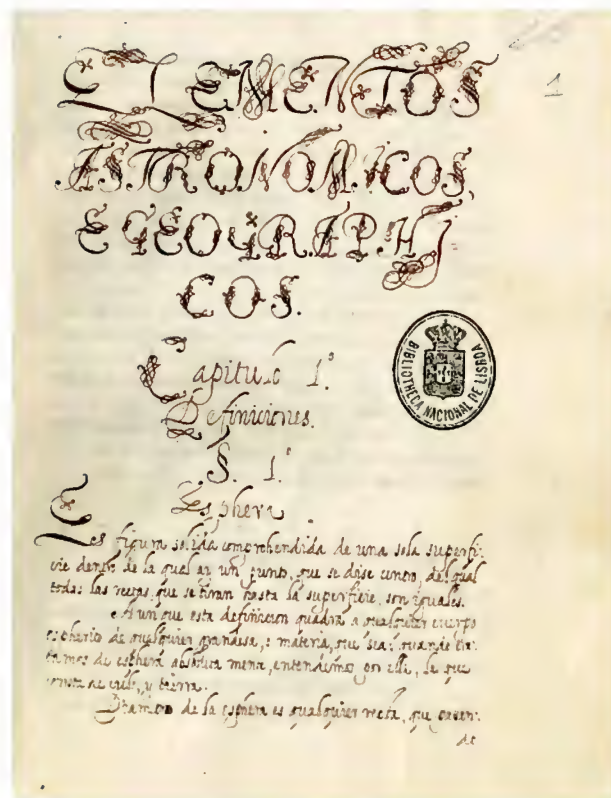 1
ELEMENTOS
ASTRONOMICOS,
E GEOGRAPHI
COS.
Capitulo 1.º
Definiciones.
§. 1.º
Esphera
BIBLIOTHECA NACIONAL DE LISBOA
Es figura solida comprehendida de una sola superfi-
cie dentro de la qual ay un punto, que se dise centro, del qual
todas las rectas, que se tiran hasta la superficie, son iguales.
Aun que esta definicion quadra a qualquier cuerpo
espherico de qualquier grandesa, o materia, que sea; quando tra-
tamos de esphera absoluta mente, entendemos por ella, la que
consta de cielo, y tierra.
Diametro de la esphera es qualquier recta, que
de